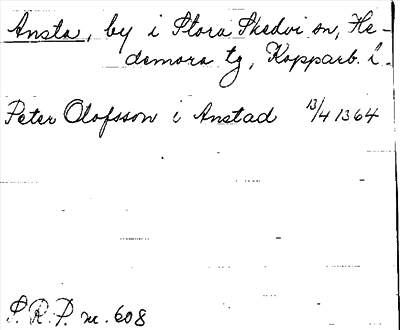 Ansta, by i Stora Skedvi sn, He-
demora tg, Kopparb. l.
Peter Olofsson i Anstad 13/4 1364
S. R. P. nr. 608